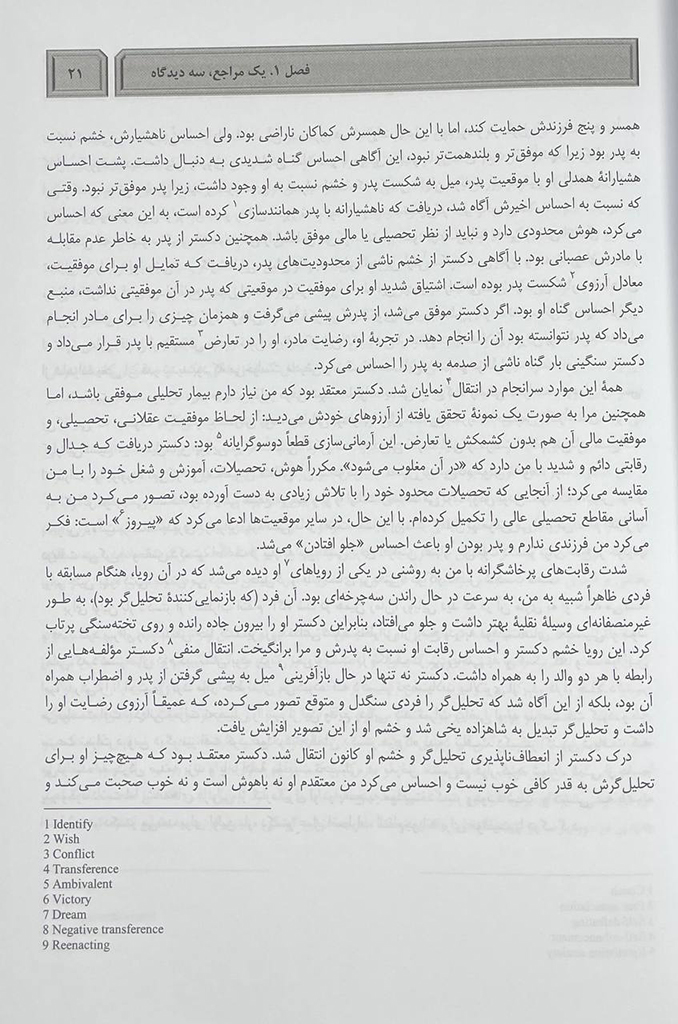 فصل ۱. یک مراجع، سه دیدگاه
۲۱
همسر و پنج فرزندش حمایت کند، اما با این حال همسرش کماکان ناراضی بود. ولی احساس ناهشیارش، خشم نسبت
به پدر بود زیرا که موفق‌تر و بلندهمت‌تر نبود، این آگاهی احساس گناه شدیدی به دنبال داشت. پشت احساس
هشیارانهٔ همدلی او با موقعیت پدر، میل به شکست پدر و خشم نسبت به او وجود داشت، زیرا پدر موفق‌تر نبود. وقتی
که نسبت به احساس اخیرش آگاه شد، دریافت که ناهشیارانه با پدر همانندسازی۱ کرده است، به این معنی که احساس
می‌کرد، هوش محدودی دارد و نباید از نظر تحصیلی یا مالی موفق باشد. همچنین دکستر از پدر به خاطر عدم مقابله
با مادرش عصبانی بود. با آگاهی دکستر از خشم ناشی از محدودیت‌های پدر، دریافت که تمایل او برای موفقیت،
معادل آرزوی۲ شکست پدر بوده است. اشتیاق شدید او برای موفقیت در موقعیتی که پدر در آن موفقیتی نداشت، منبع
دیگر احساس گناه او بود. اگر دکستر موفق می‌شد، از پدرش پیشی می‌گرفت و همزمان چیزی را برای مادر انجام
می‌داد که پدر نتوانسته بود آن را انجام دهد. در تجربهٔ او، رضایت مادر، او را در تعارض۳ مستقیم با پدر قرار می‌داد و
دکستر سنگینی بار گناه ناشی از صدمه به پدر را احساس می‌کرد.
همهٔ این موارد سرانجام در انتقال۴ نمایان شد. دکستر معتقد بود که من نیاز دارم بیمار تحلیلی موفقی باشد، اما
همچنین مرا به صورت یک نمونهٔ تحقق یافته از آرزوهای خودش می‌دید: از لحاظ موفقیت عقلانی، تحصیلی، و
موفقیت مالی آن هم بدون کشمکش یا تعارض. این آرمانی‌سازی قطعاً دوسوگرایانه۵ بود: دکستر دریافت که جدال و
رقابتی دائم و شدید با من دارد که «در آن مغلوب می‌شود». مکرراً هوش، تحصیلات، آموزش و شغل خود را با من
مقایسه می‌کرد؛ از آنجایی که تحصیلات محدود خود را با تلاش زیادی به دست آورده بود، تصور می‌کرد من به
آسانی مقاطع تحصیلی عالی را تکمیل کرده‌ام. با این حال، در سایر موقعیت‌ها ادعا می‌کرد که «پیروز۶» است: فکر
می‌کرد من فرزندی ندارم و پدر بودن او باعث احساس «جلو افتادن» می‌شد.
شدت رقابت‌های پرخاشگرانه با من به روشنی در یکی از رویاهای۷ او دیده می‌شد که در آن رویا، هنگام مسابقه با
فردی ظاهراً شبیه به من، به سرعت در حال راندن سه‌چرخه‌ای بود. آن فرد (که بازنمایی‌کنندهٔ تحلیل‌گر بود)، به طور
غیرمنصفانه‌ای وسیلهٔ نقلیهٔ بهتر داشت و جلو می‌افتاد، بنابراین دکستر او را بیرون جاده رانده و روی تخته‌سنگی پرتاب
کرد. این رویا خشم دکستر و احساس رقابت او نسبت به پدرش و مرا برانگیخت. انتقال منفی۸ دکستر مؤلفه‌هایی از
رابطه با هر دو والد را به همراه داشت. دکستر نه تنها در حال بازآفرینی۹ میل به پیشی گرفتن از پدر و اضطراب همراه
آن بود، بلکه از این آگاه شد که تحلیل‌گر را فردی سنگدل و متوقع تصور می‌کرده، که عمیقاً آرزوی رضایت او را
داشت و تحلیل‌گر تبدیل به شاهزاده یخی شد و خشم او از این تصویر افزایش یافت.
درک دکستر از انعطاف‌ناپذیری تحلیل‌گر و خشم او کانون انتقال شد. دکستر معتقد بود که هیچ‌چیز او برای
تحلیل‌گرش به قدر کافی خوب نیست و احساس می‌کرد من معتقدم او نه باهوش است و نه خوب صحبت می‌کند و
1 Identify
2 Wish
3 Conflict
4 Transference
5 Ambivalent
6 Victory
7 Dream
8 Negative transference
9 Reenacting